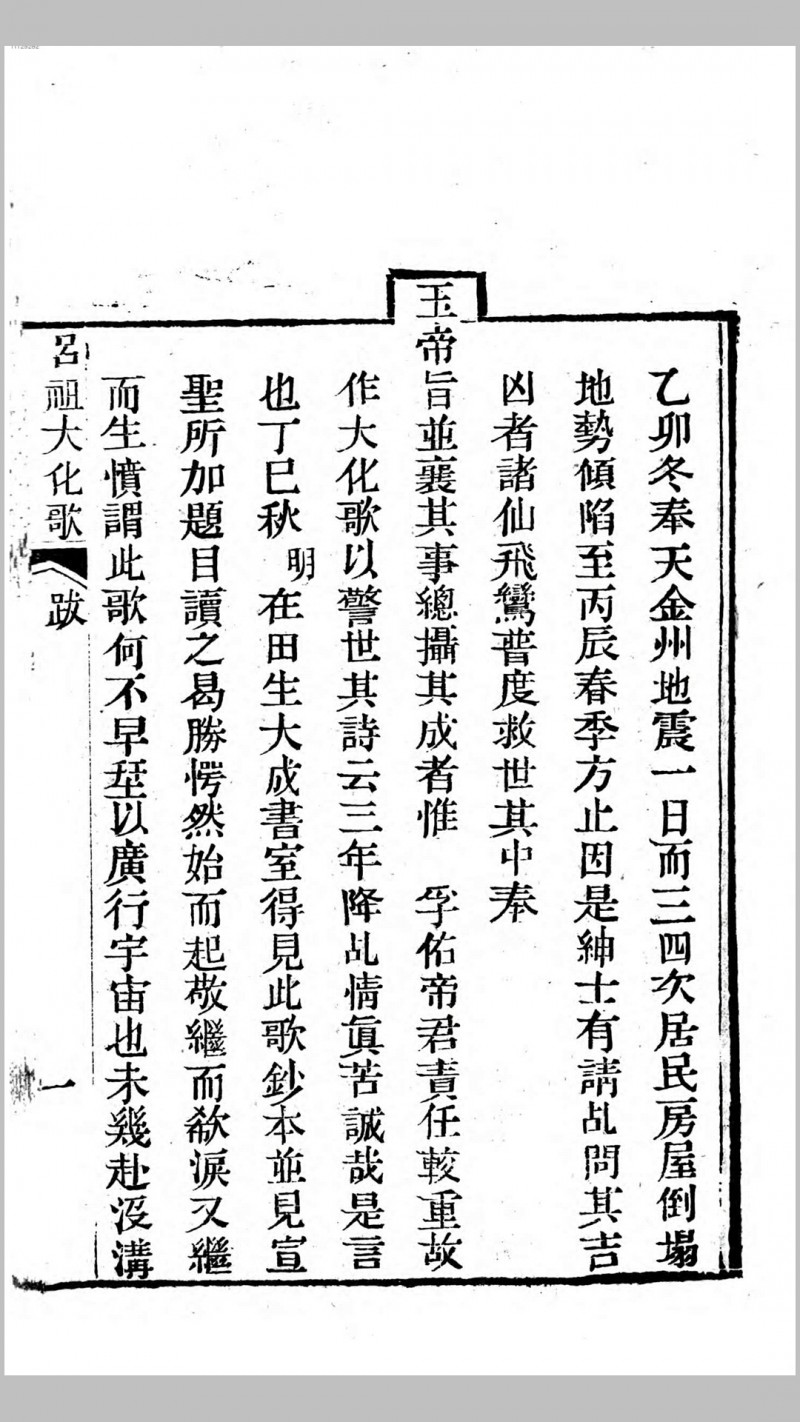 乙卯冬奉天金州地震一日而三四次居民房屋倒塌
地勢傾陷至丙辰春季方止因是紳士有請乩問其吉
凶者諸仙飛鸞普度救世其中奉
玉帝旨並襄其事總攝其成者惟 孚佑帝君責任較重故
作大化歌以警世其詩云三年降乩情真苦誠哉是言
也丁巳秋 明 在田生大成書室得見此歌鈔本並見宣
聖所加題目讀之曷勝愕然始而起敬繼而欲淚又繼
而生憤謂此歌何不早葊以廣行宇宙也未幾赴沒溝
呂祖大化歌 跋 一